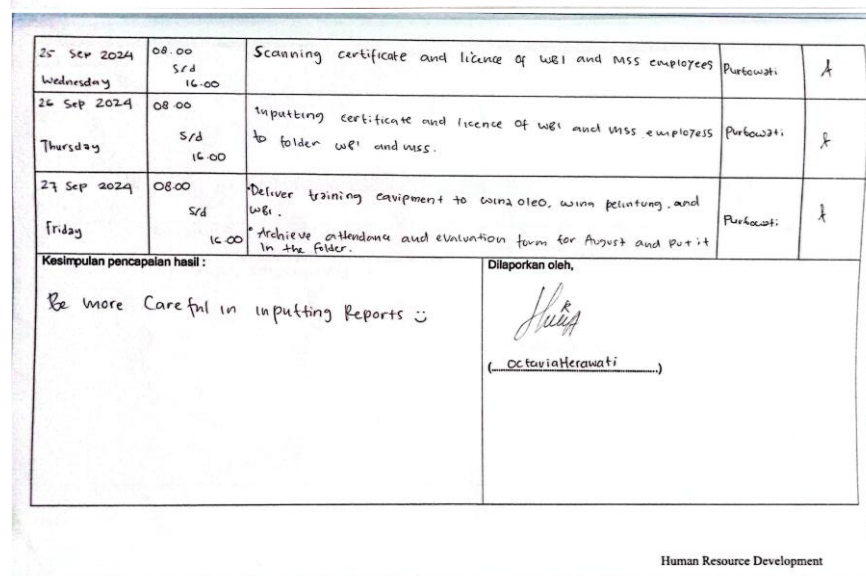 25 Sep 2024
Wednesday
08.00
s/d
16.00
Scanning certificate and licence of WBI and MSS employees
Purbowati
26 Sep 2024
Thursday
08.00
s/d
16.00
Inputting certificate and licence of WBI and MSS employess
to folder WBI and MSS.
Purbowati
27 Sep 2024
Friday
08.00
s/d
16.00
•Deliver training equipment to wina oleo, wina pelintung, and
WBI.
• Archieve attendance and evaluation form for August and put it
in the folder.
Purbowati
Kesimpulan pencapaian hasil :
Be more Careful in inputting Reports ü
Dilaporkan oleh,
(....Octavia Herawati....)
Human Resource Development